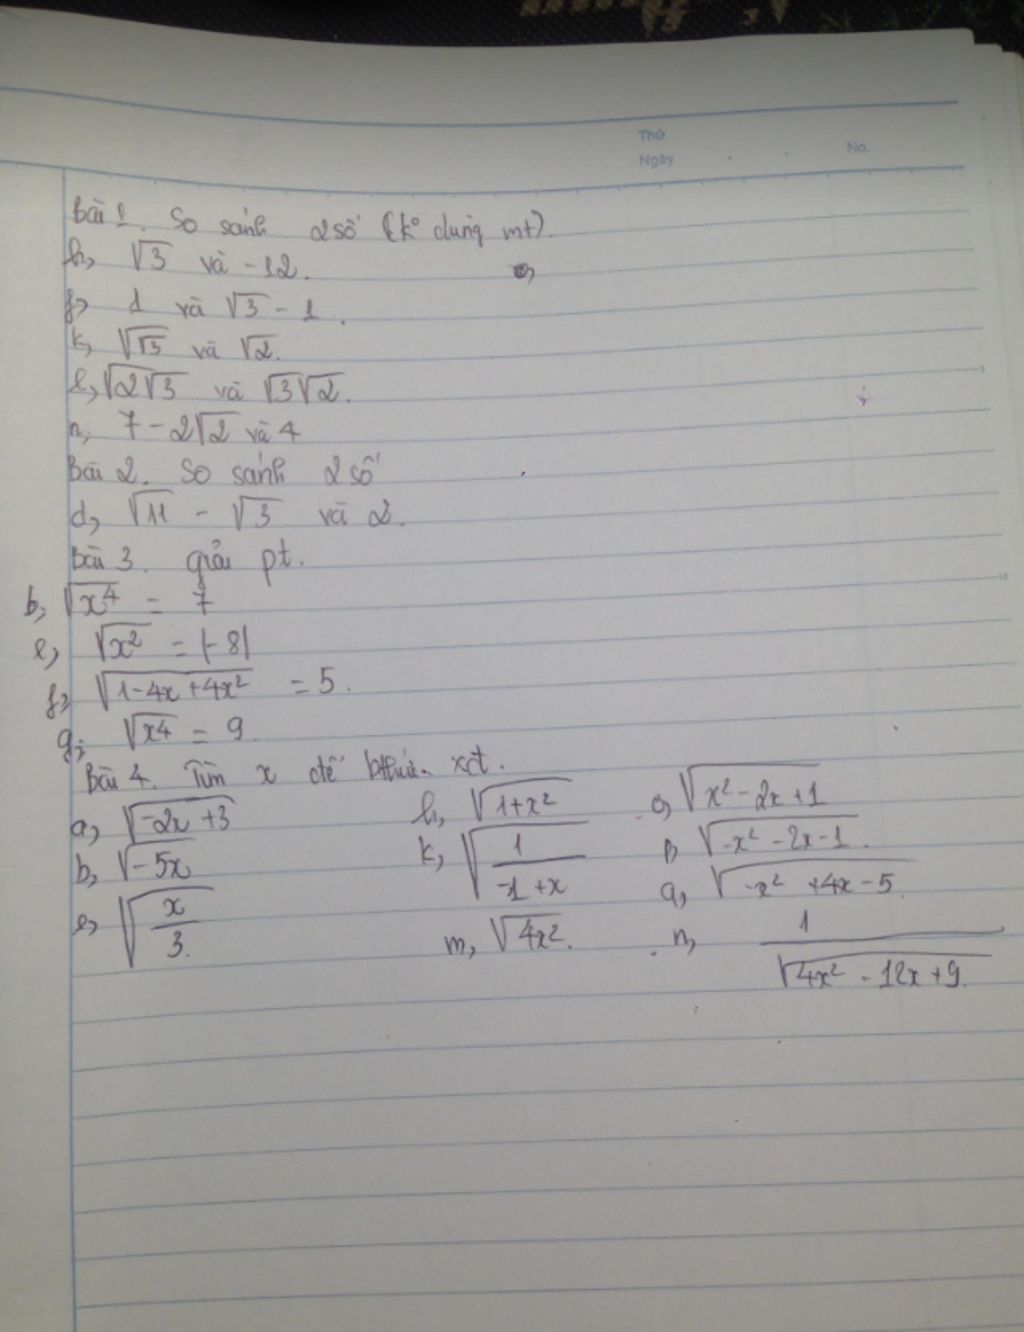 Thứ
Ngày
No.
Bài 1. So sánh 2 số (k° dùng mt)
h, √3 và -12.
f, 1 và √3 - 1.
k, √√3 và √2.
l, √2√3 và √3√2.
n, 7 - 2√2 và 4
Bài 2. So sánh 2 số
d, √11 - √3 và 2.
Bài 3. giải pt.
b, √x⁴ = 7
e, √x² = |-8|
f, √1-4x+4x² = 5.
g, √x⁴ = 9.
Bài 4. Tìm x để bthức xđ.
a, √-2x+3 h, √1+x² o, √x²-2x+1
b, √-5x k, √1/-1+x p, √-x²-2x-1.
e, √x/3. m, √4x². q, √-x²+4x-5.
n, 1/√4x²-12x+9.